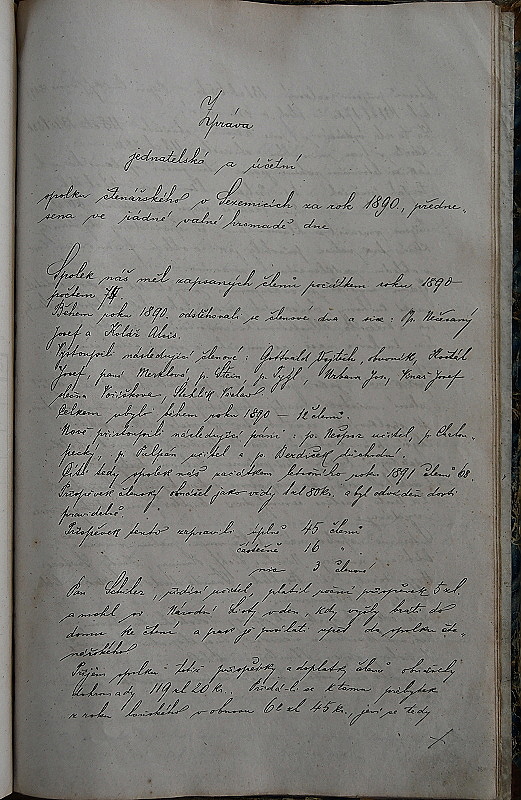 Zpráva
jednatelská a účetní
spolku čtenářského v Sezemicích za rok 1890, předne-
sena ve řádné valné hromadě dne
Spolek náš měl zapsaných členů počátkem roku 1890
počtem
Během roku 1890 odstěhovali se členové dva a sice: Pp. Nečesaný
Josef a Kolář Alois.
Vystoupili následující členové: Gottwald Vojtěch, obvoník, Košťál
Josef, paní Merklová, p. Stein, p. Tygl, Urbann Jan, Knař Josef
slečna Voříškova, Stehlík Václav
Celkem ubylo během roku 1890 — 12 členů.
Nově přistoupili následující páni: pp. Neápor učitel, p. Chalou-
pecký, p. Pulpán učitel a p. Berdišek důchodní.
Čítá tedy spolek náš začátkem letošního roku 1891 členů 68.
Příspěvek členský obnášel jako vždy 1 zl 80 kr. a byl odváděn dosti
pravidelně.
Příspěvek tento zapravili úplně 45 členů
částečně 16 "
nic 3 členové
Pan Schiler, řídící učitel, platil roční příspěvek 5 zl.
a mohl si Národní Listy v den, kdy vyšly bráti do
domu ke čtení a pak je posílati zpět do spolku čte-
nářského
Příjem spolku totiž příspěvky a doplatky členů obnášely
dohromady 119 zl 20 kr. Přidá-li se k tomu přebytek
z roku loňského v obnosu 62 zl 45 kr., jeví se tedy